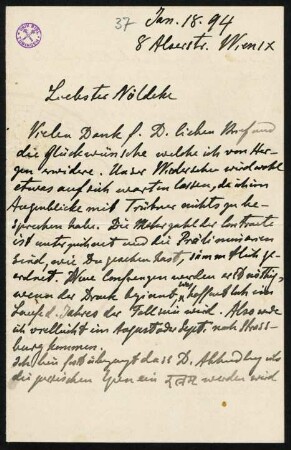 37
Jan. 18. 94
8 Alserstr. Wien IX
Liebster Nöldeke
Vielen Dank f. D. lieben Brief und
die Glückwünsche welche ich von Her-
zen erwidere. Unser Wiedersehen wird wohl
etwas auf sich warten lassen, da ich im
Augenblicke mit Trübner nichts zu be-
sprechen habe. Die Mehrzahl der Contracte
ist unterzeichnet und die Präliminarien
sind, wie Du gesehen hast, sämmtlich ge-
ordnet. Neue werden erst nöthig,
wenn der Druck beginnt, was hoffentlich im
Laufe d. Jahres der Fall sein wird. Also werde
ich vielleicht im August oder Sept. nach Strass-
burg kommen.
Ich bin fest überzeugt dass D. Abhandlung über
die persischen Epen ein रत्नम् werden wird